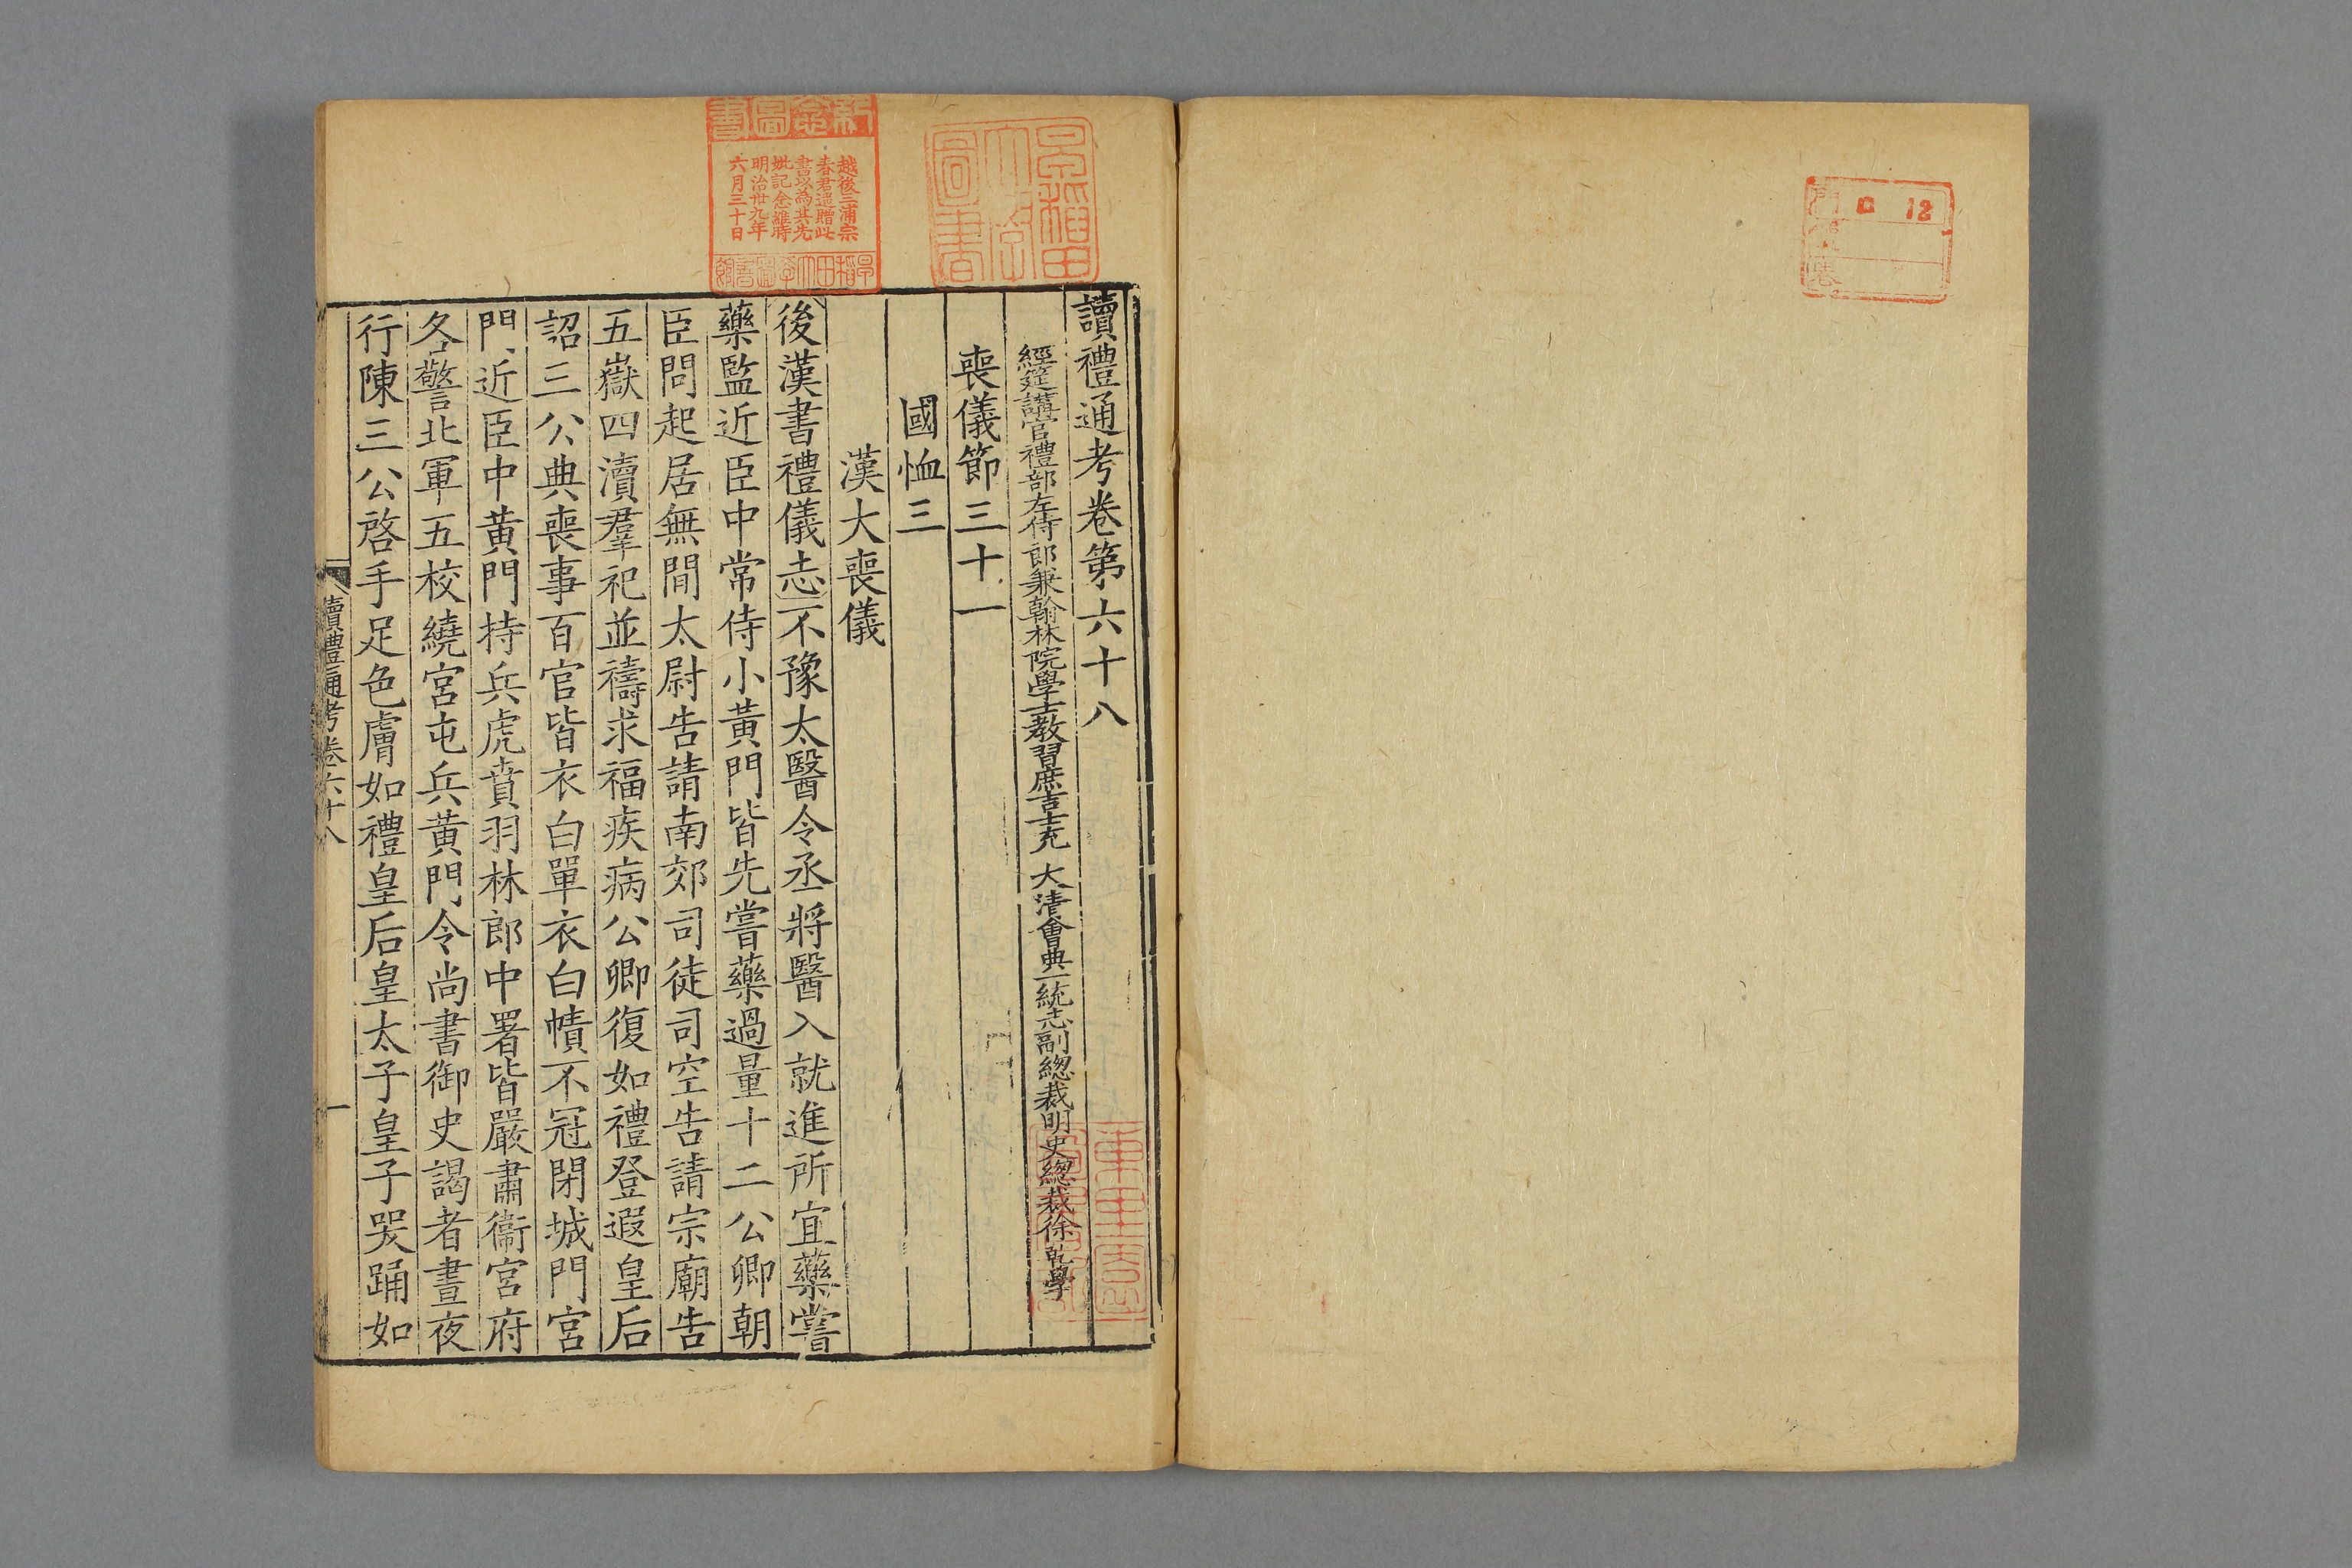 讀禮通考卷第六十八
經筵講官禮部左侍郎兼翰林院學士教習庶吉士充 大清會典一統志副總裁明史總裁徐乾學
喪儀節三十一
國恤三
漢大喪儀
後漢書禮儀志不豫太醫令丞將醫入就進所宜藥嘗
藥監近臣中常侍小黃門皆先嘗藥過量十二公卿朝
臣問起居無間太尉告請南郊司徒司空告請宗廟告
五嶽四瀆羣祀並禱求福疾病公卿復如禮登遐皇后
詔三公典喪事百官皆衣白單衣白幘不冠閉城門宮
門近臣中黃門持兵虎賁羽林郎中署皆嚴肅衞宮府
各警北軍五校繞宮屯兵黃門令尚書御史謁者晝夜
行陳三公啓手足色膚如禮皇后皇太子皇子哭踊如
讀禮通考卷六十八
一
越後三浦宗
春君遥贈此
書以為其先
妣記念維時
明治卅九年
六月三十日
早稲田大學圖書館
早稲田大學圖書
ロ 12
門
號